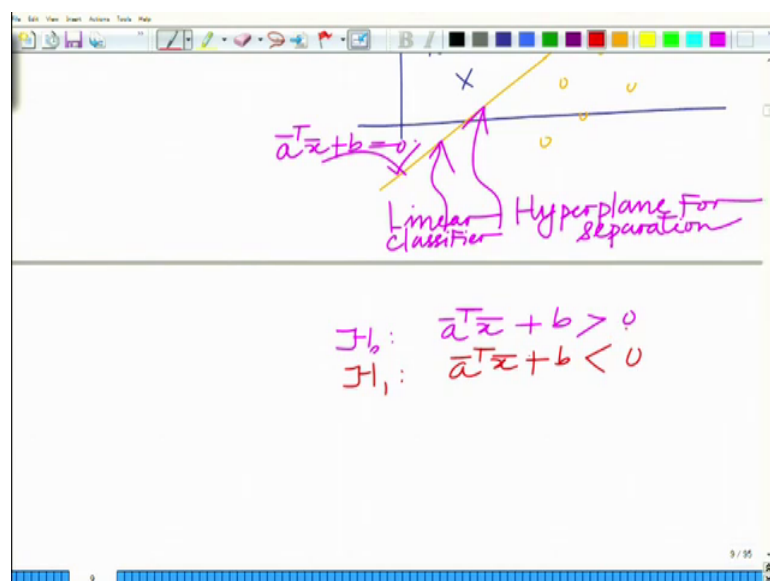 File Edit View Insert Actions Tools Help
B I
x
o o
o
o
āᵀx̄ + b = 0
Linear Classifier
Hyperplane For separation
H₀: āᵀx̄ + b > 0
H₁: āᵀx̄ + b < 0
9 / 95
9